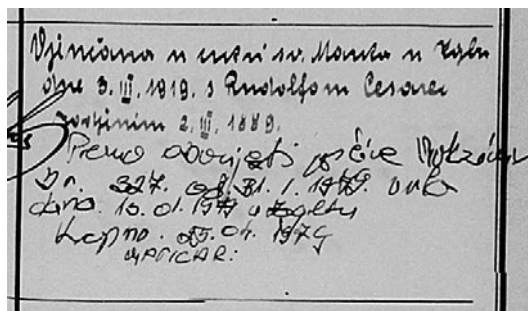 Vjenčana u crkvi sv. Marka u Zgbu
dne 3. III. 1919. s Rudolfom Cesarec
rodjenim 2. III. 1889.
Prema obavijesti općine
Br. 327. od 31. 1. 1979. umrla
dana. 10. 01. 1979 u Zagrebu
25. 04. 1979
MATIČAR: